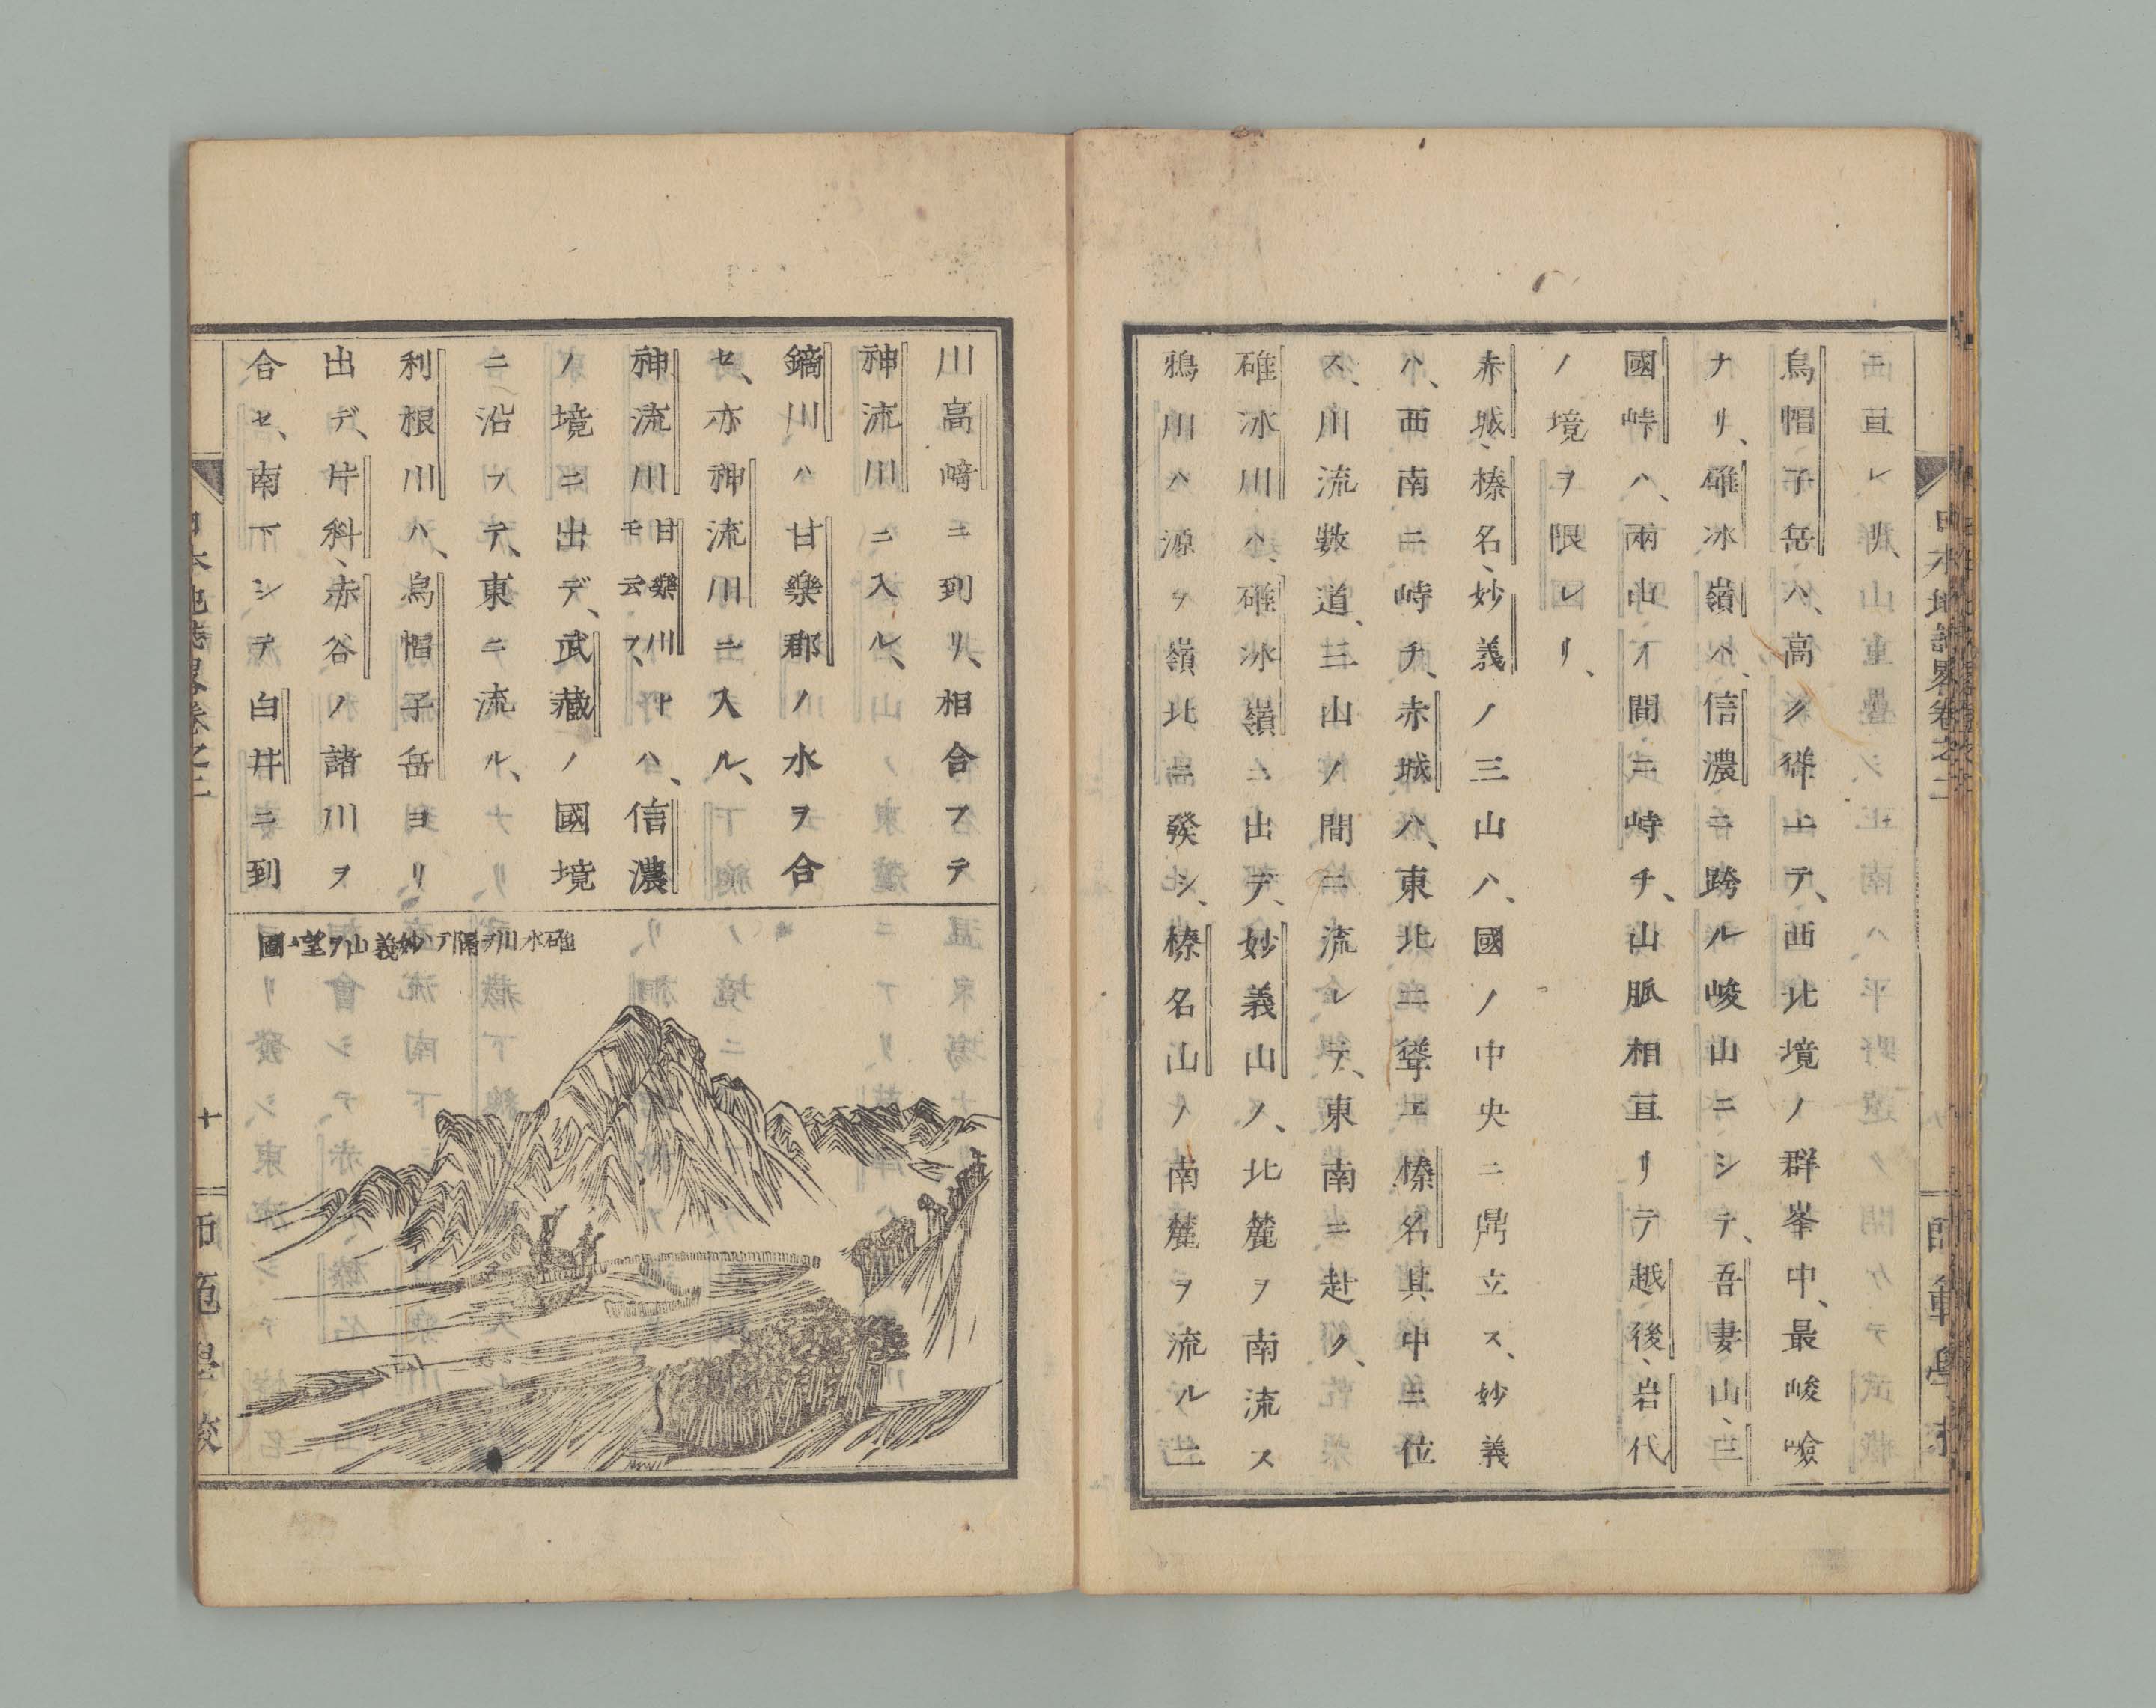 ニ亘レリ、
烏帽子岳ハ、高ク聳エテ、西北境ノ群峯中、最峻嶮
ナリ、碓冰嶺ハ、信濃ニ跨ル峻山ニシテ、吾妻山、三
國峠ハ、兩山ノ間ニ峙チ、山脈相亘リテ越後、岩代
ノ境ヲ限レリ、
赤城、榛名、妙義ノ三山ハ、國ノ中央ニ鼎立ス、妙義
ハ、西南ニ峙チ、赤城ハ、東北ニ聳エ、榛名其中ニ位
ス、川流數道、三山ノ間ニ流レテ、東南ニ赴ク、
碓冰川ハ、碓冰嶺ニ出デ、妙義山ノ、北麓ヲ南流ス
鴉川ハ源ヲ嶺北ニ發シ、榛名山ノ南麓ヲ流ル二
日本地誌畧卷之二
師範學校
川高﨑ニ到リ、相合フテ
神流川ニ入ル、
鏑川ハ甘樂郡ノ水ヲ合
セ、亦神流川ニ入ル、
神流川甘樂川モ云フ、ハ、信濃
ノ境ニ出デ、武藏ノ國境
ニ沿フテ、東ニ流ル、
利根川ハ、烏帽子岳ヨリ
出デ、片科、赤谷ノ諸川ヲ
合セ、南下シテ白井ニ到
碓氷川ヲ隔テ妙義山ヲ望ム圖
日本地誌畧卷之二
十
師範學校